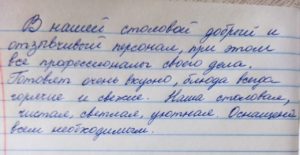 В нашей столовой добрый и
отзывчивый персонал, при этом
все профессионалы своего дела.
Готовят очень вкусно, блюда всегда
горячие и свежие. Наша столовая,
чистая, светлая, уютная. Оснащена
всем необходимым.